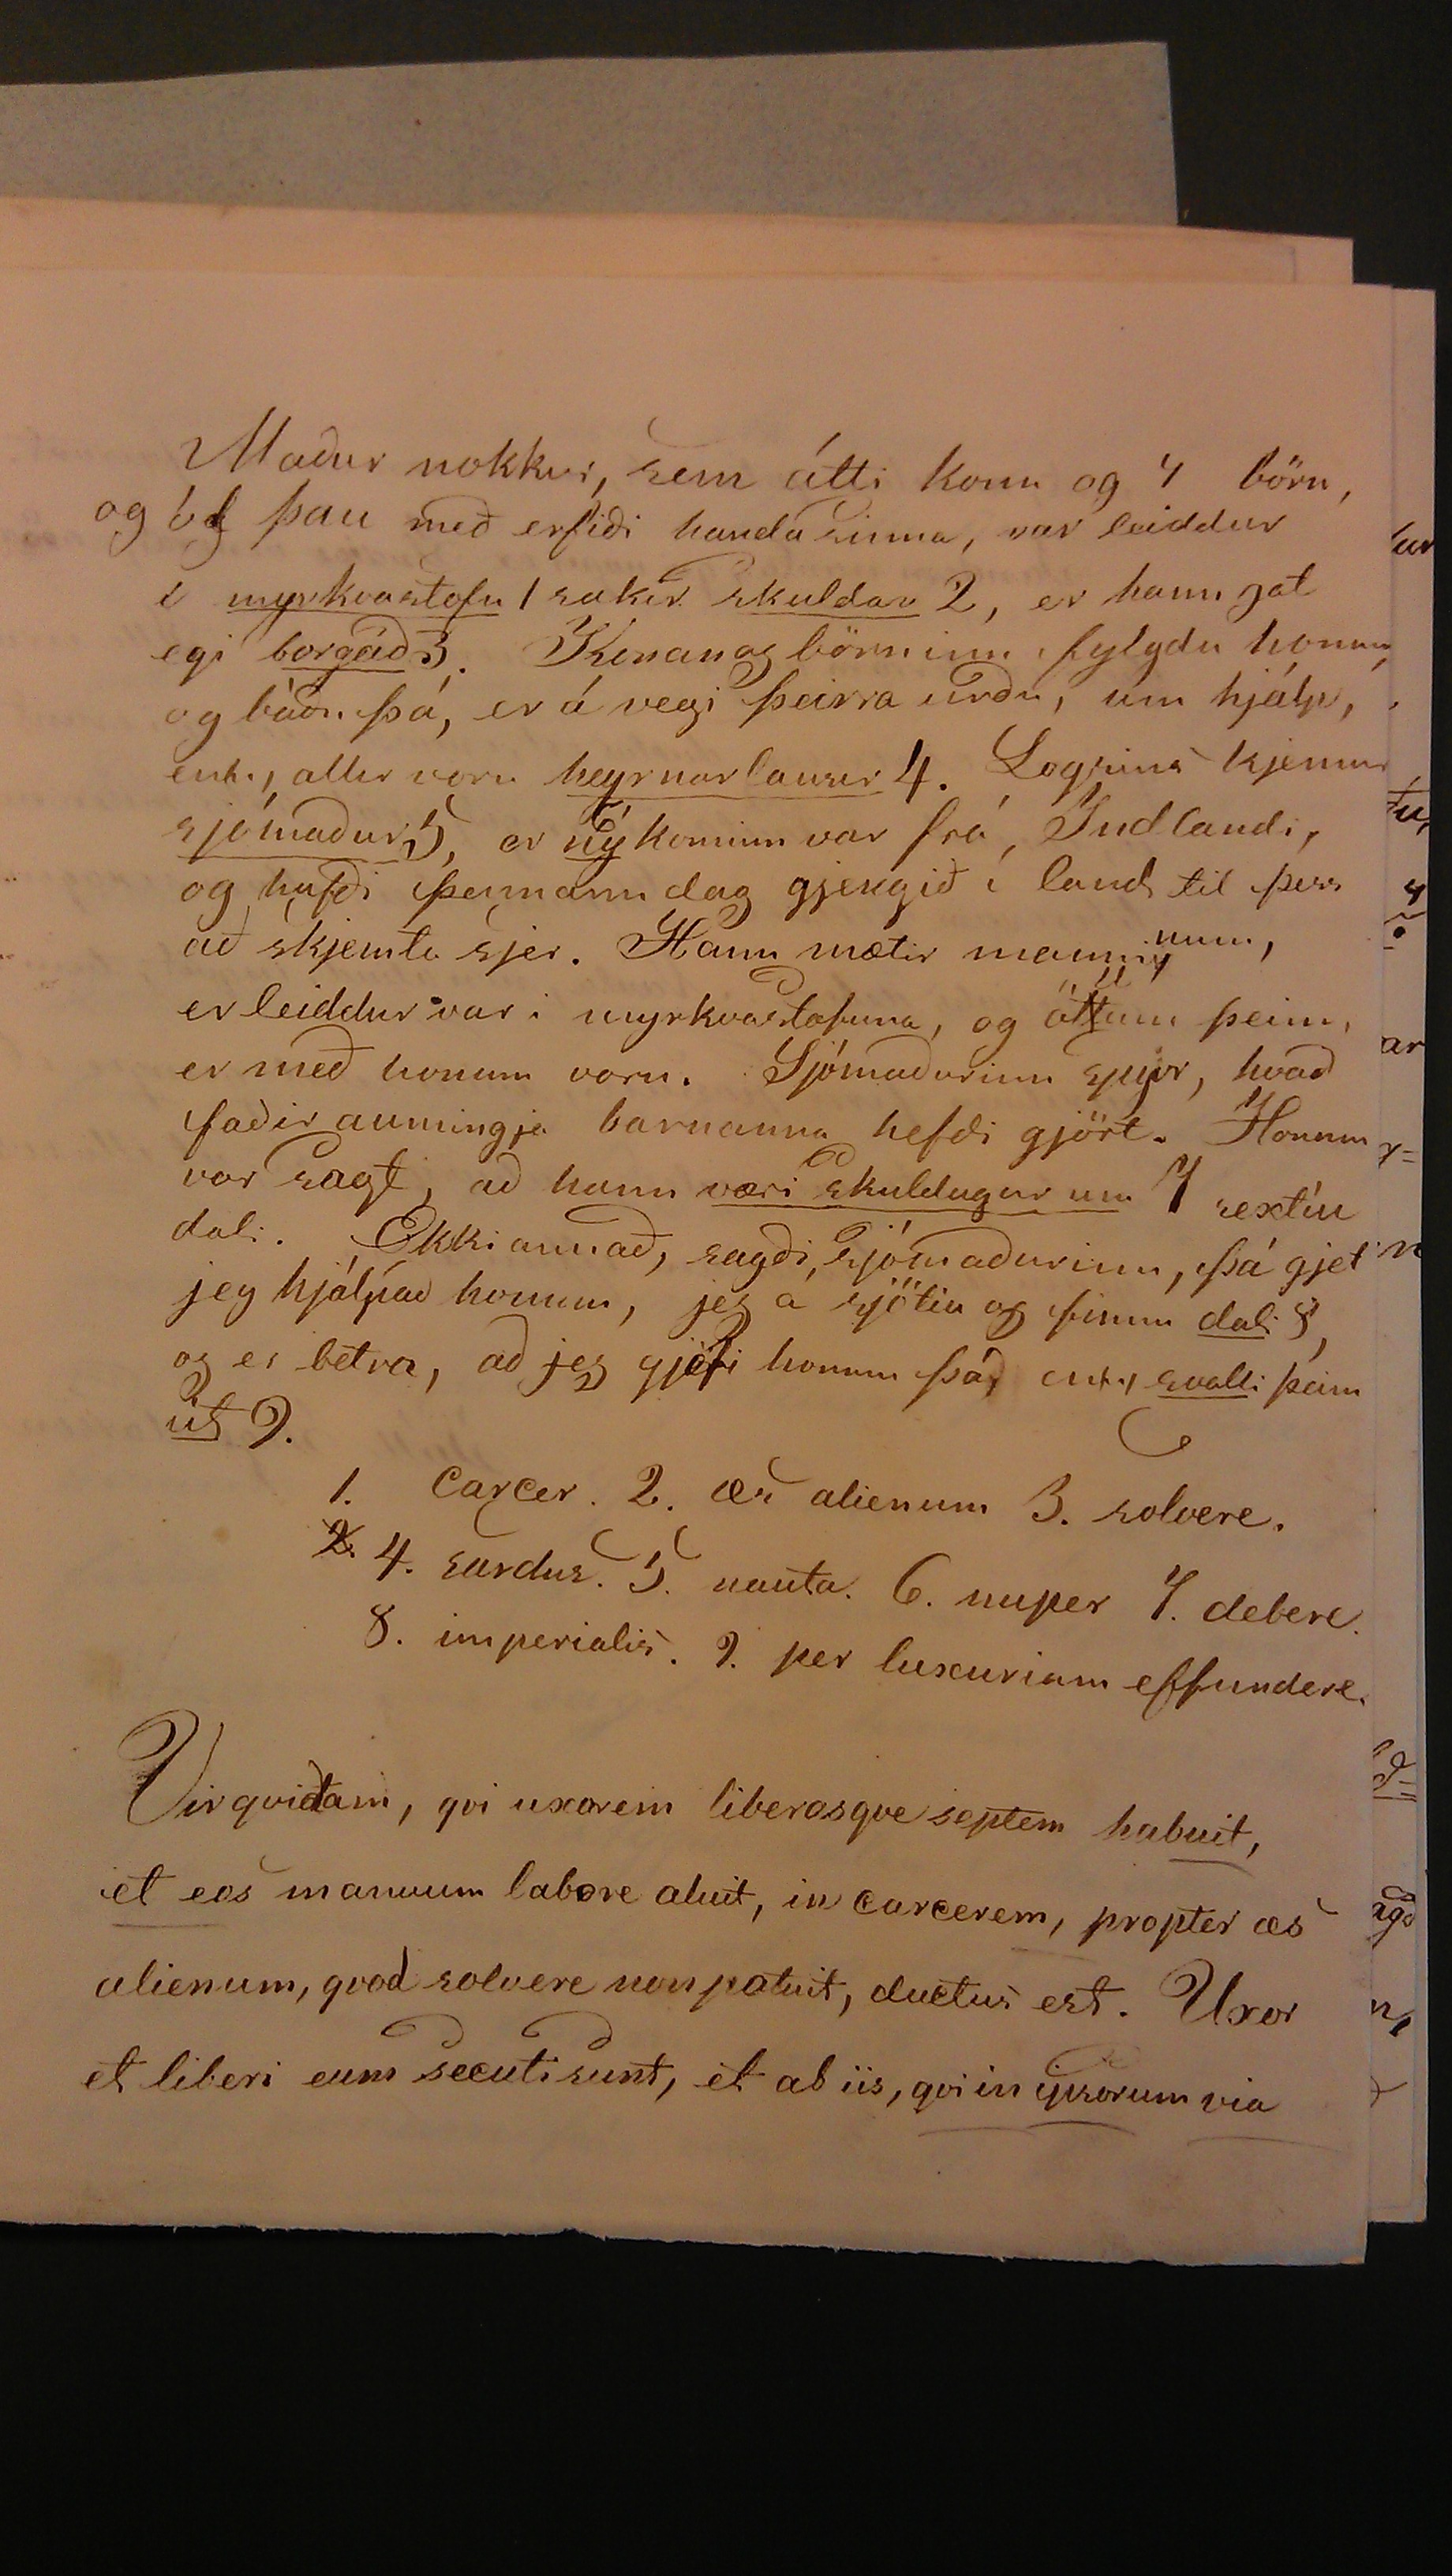 Maður nokkur, sem átti konu og 7 börn,
og ól þau með erfiði handa sinna, var leiddur
í myrkvastofu 1 sakir skuldar 2, er hann gat
egi borgað 3. Konan og börninn fylgdu honum
og báðu þá, er á vegi þeirra urðu, um hjálp,
enn, allir voru heyrnarlausir 4. Logsins kjemur
sjómaður 5, er ný 6 kominn var frá Indlandi,
og hafði þennann dag gjengið í land til þess
að skjemta sjer. Hann mætir manninum,
er leiddur var í myrkvastofuna, og öllum þeim,
er með honum voru. Sjómaðurinn spyr, hvað
faðir aumingja barnanna hefði gjört. Honum
var sagt, að hann væri skuldugur um 7 sextíu
dali. Ekki annað, sagði sjómaðurinn, þá get
jeg hjálpað honum, jeg á sjötíu og fimm dali 8,
og er betra, að jeg gjefi honum þá, enn, svalli þeim
út 9.
1. Carcer. 2. æs alienum 3. solvere.
4. surdus. 5. nauta. 6. nuper 7. debere.
8. imperialis. 9. per luxuriam effundere.
Vir qvidam, qvi uxorem liberosqve septem habuit,
et eos manuum labore aluit, in carcerem, propter æs
alienum, qvod solvere non potuit, ductus est. Uxor
et liberi eum secuti sunt, et ab iis, qvi in ipsorum via